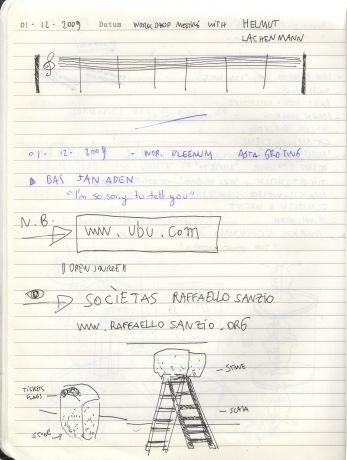 01 - 12 - 2009 Datum WORKSHOP MEETING WITH HELMUT
LACHENMANN
01 - 12 - 2009 - WOR. PLEENUM ASTA GRÖTING
BAS JAN ADEN
"I'm so sorry to tell you"
N.B.
www.ubu.com
!! OPEN SOURCE !!
SOCÌETAS RAFFAELLO SANZIO
www.RAFFAELLO SANZIO.ORG
STONE
SCALA
STONE